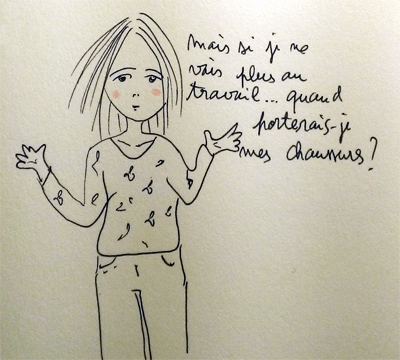 mais si je ne
vais plus au
travail... quand
porterais-je
mes chaussures?